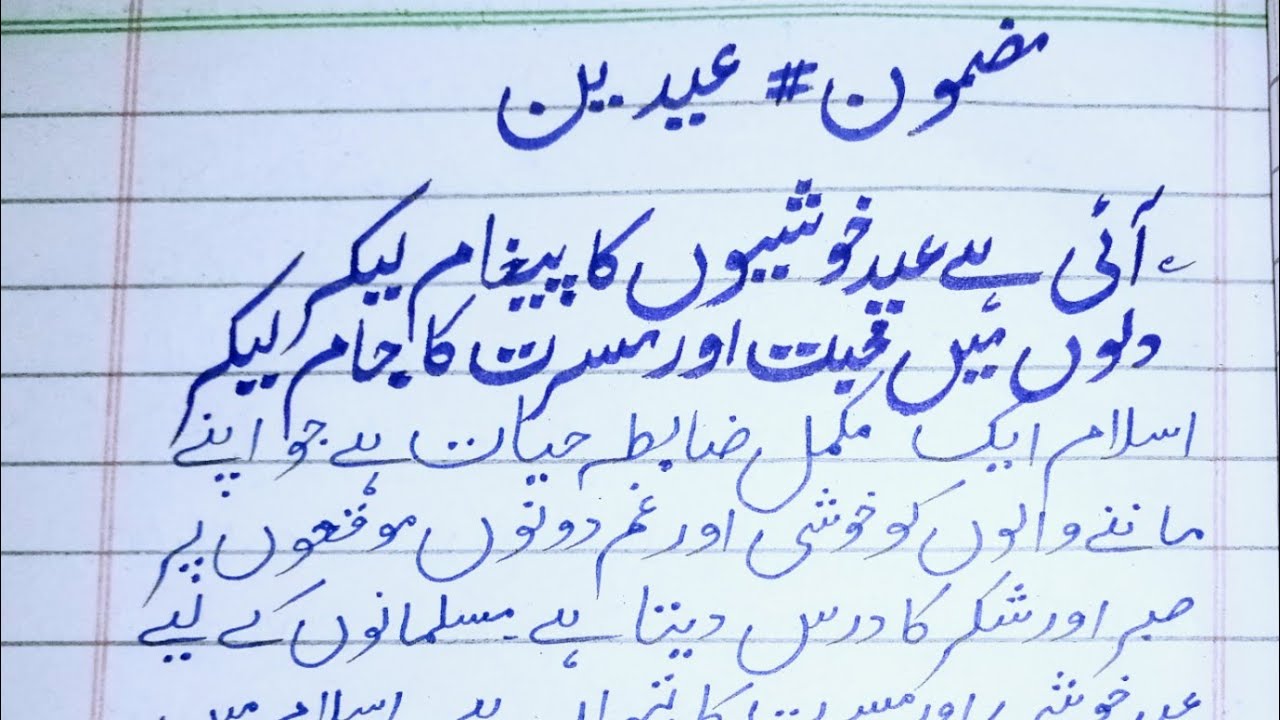 مضمون # عیدین
آئی ہے عید خوشیوں کا پیغام لیکر
دلوں میں محبت اور مسرت کا جام لیکر
اسلام ایک مکمل ضابطہ حیات ہے جو اپنے
ماننے والوں کو خوشی اور غم دونوں موقعوں پر
صبر اور شکر کا درس دیتا ہے۔ مسلمانوں کے لیے
عید خوشی اور مسرت کا تہوار ہے۔ اسلام میں